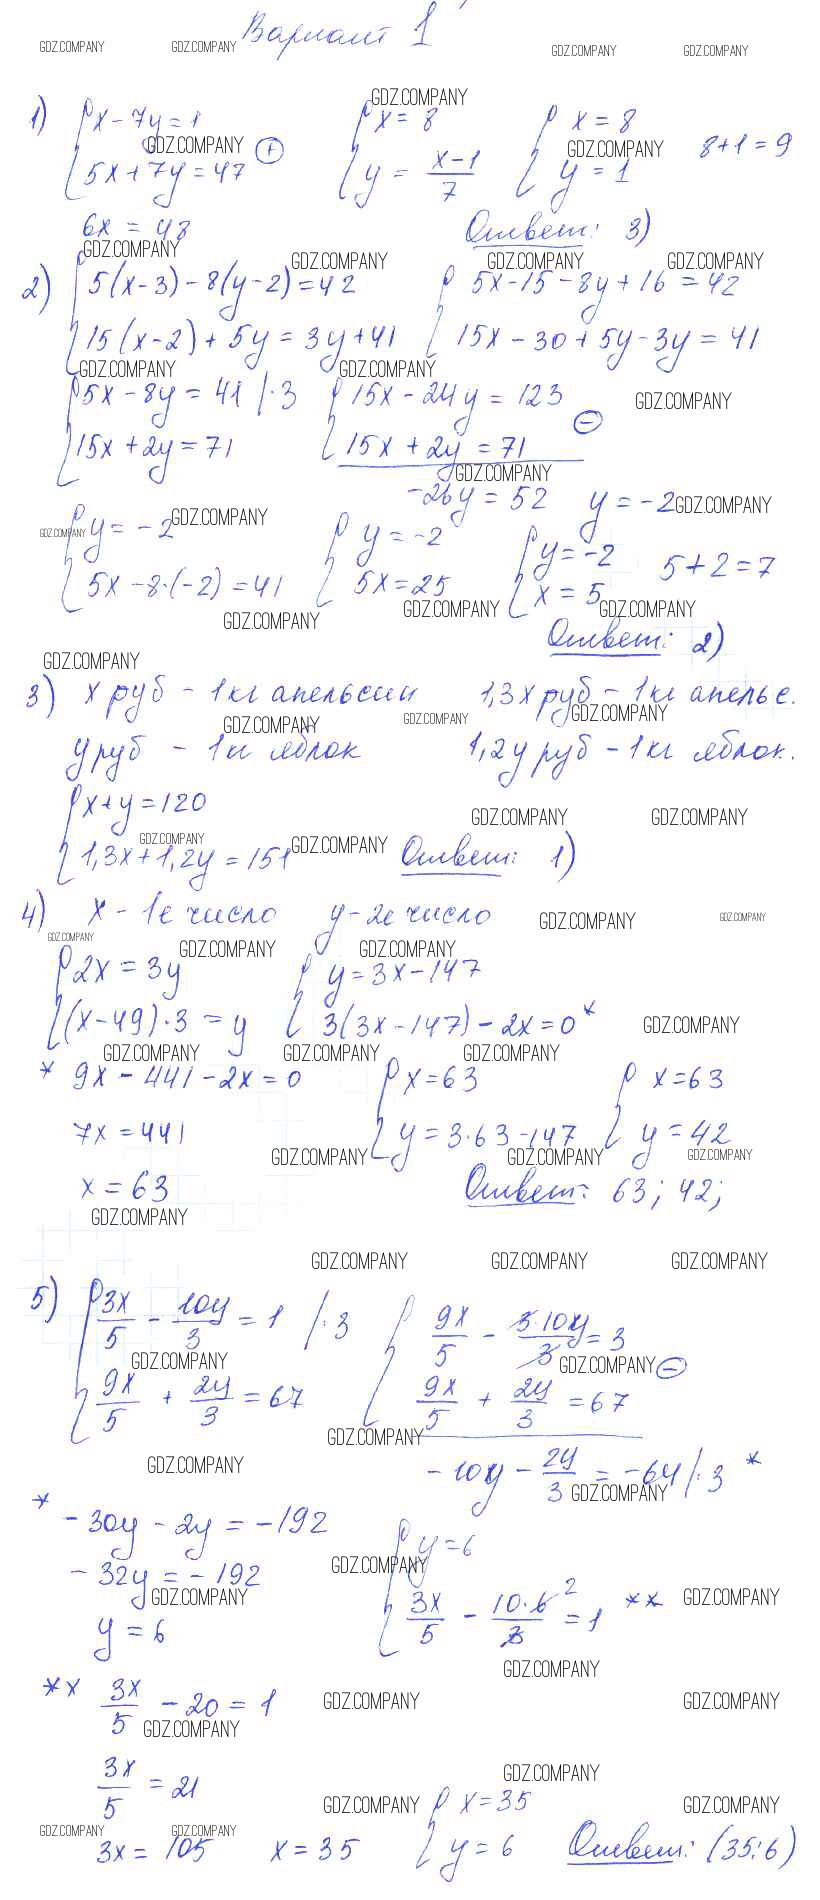 Вариант 1
GDZ.COMPANY GDZ.COMPANY GDZ.COMPANY GDZ.COMPANY
GDZ.COMPANY
1) { x - 7y = 1 { x = 8 { x = 8 8+1=9
GDZ.COMPANY GDZ.COMPANY
5x + 7y = 47 (+) y = (x-1)/7 y = 1
6x = 48 Ответ: 3)
GDZ.COMPANY GDZ.COMPANY GDZ.COMPANY GDZ.COMPANY
2) { 5(x-3) - 8(y-2) = 42 { 5x - 15 - 8y + 16 = 42
15(x-2) + 5y = 3y + 41 15x - 30 + 5y - 3y = 41
GDZ.COMPANY GDZ.COMPANY
{ 5x - 8y = 41 |·3 { 15x - 24y = 123 GDZ.COMPANY
15x + 2y = 71 15x + 2y = 71 (-)
GDZ.COMPANY
-26y = 52 y = -2 GDZ.COMPANY
GDZ.COMPANY GDZ.COMPANY
{ y = -2 { y = -2 { y = -2 5+2=7
5x - 8·(-2) = 41 5x = 25 x = 5
GDZ.COMPANY GDZ.COMPANY GDZ.COMPANY
Ответ: 2)
GDZ.COMPANY
3) x руб - 1кг апельсин 1,3x руб - 1кг апельс.
GDZ.COMPANY GDZ.COMPANY GDZ.COMPANY
y руб - 1кг яблок 1,2y руб - 1кг яблок.
{ x + y = 120
GDZ.COMPANY GDZ.COMPANY GDZ.COMPANY GDZ.COMPANY
1,3x + 1,2y = 151 Ответ: 1)
4) x - 1е число y - 2е число GDZ.COMPANY GDZ.COMPANY
GDZ.COMPANY GDZ.COMPANY GDZ.COMPANY
{ 2x = 3y { y = 3x - 147
(x-49)·3 = y 3(3x-147) - 2x = 0 * GDZ.COMPANY
GDZ.COMPANY GDZ.COMPANY GDZ.COMPANY
* 9x - 441 - 2x = 0 { x = 63 { x = 63
7x = 441 y = 3·63-147 y = 42
GDZ.COMPANY GDZ.COMPANY GDZ.COMPANY
x = 63 Ответ: 63; 42;
GDZ.COMPANY
GDZ.COMPANY GDZ.COMPANY GDZ.COMPANY
5) { 3x/5 - 10y/3 = 1 |·3 { 9x/5 - 3·10y/3 = 3
GDZ.COMPANY GDZ.COMPANY (-)
9x/5 + 2y/3 = 67 9x/5 + 2y/3 = 67
GDZ.COMPANY
GDZ.COMPANY -10y - 2y/3 = -64 |·3 *
GDZ.COMPANY
* -30y - 2y = -192 { y = 6
-32y = -192 GDZ.COMPANY
GDZ.COMPANY 3x/5 - 10·6/3 ² = 1 ** GDZ.COMPANY
y = 6
GDZ.COMPANY
** 3x/5 - 20 = 1 GDZ.COMPANY GDZ.COMPANY
GDZ.COMPANY
3x/5 = 21 GDZ.COMPANY
GDZ.COMPANY { x = 35 GDZ.COMPANY
GDZ.COMPANY GDZ.COMPANY
3x = 105 x = 35 y = 6 Ответ: (35;6)